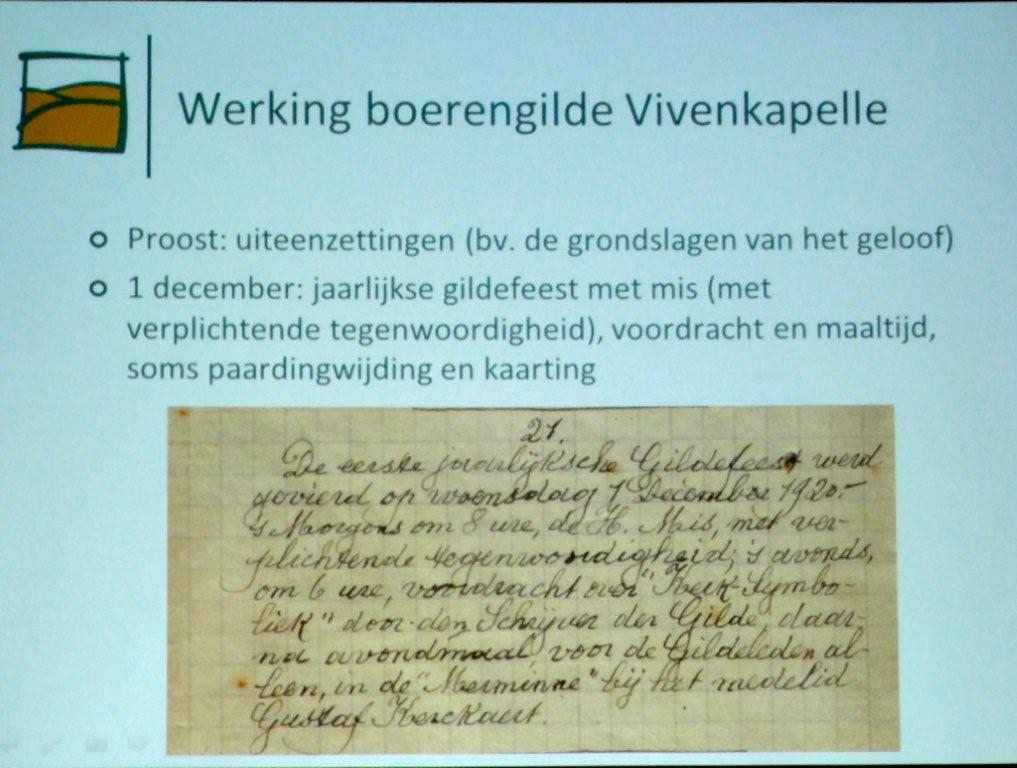 Werking boerengilde Vivenkapelle
Proost: uiteenzettingen (bv. de grondslagen van het geloof)
1 december: jaarlijkse gildefeest met mis (met
verplichtende tegenwoordigheid), voordracht en maaltijd,
soms paardingwijding en kaarting
21.
De eerste jaarlijksche Gildefeest werd
gevierd op woensdag 1 December 1920.-
's Morgens om 8 ure, de H. Mis, met ver-
plichtende tegenwoordigheid; 's avonds,
om 6 ure, voordracht over "Kerk-Symbo-
liek" door den Schrijver der Gilde, daar-
na avondmaal voor de Gildeleden al-
leen, in de "Merminne" bij het medelid
Gustaf Kerckaert.